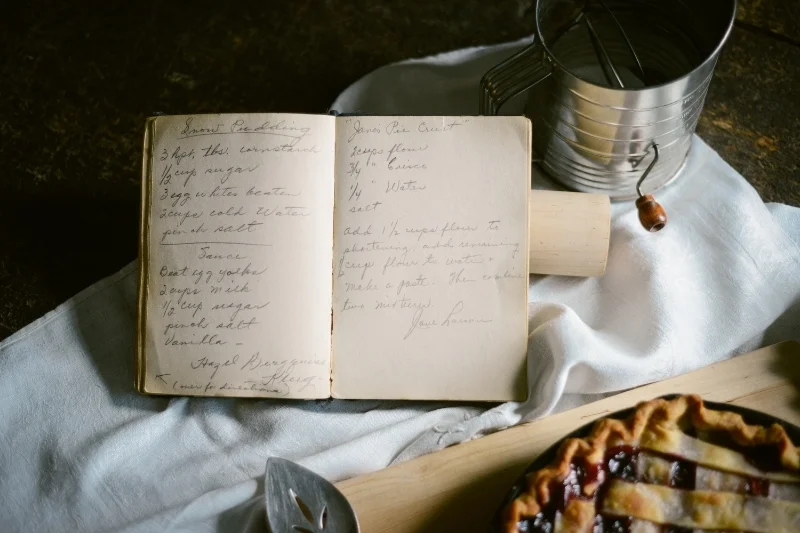 Snow Pudding
3 hpt. tbs. cornstarch
1/2 cup sugar
3 egg whites beaten
2 cups cold Water
pinch salt
Sauce
Beat egg yolks
2 cups milk
1/2 cup sugar
pinch salt
Vanilla -
Hazel
(over for directions)
"Janes Pie Crust"
2 cups flour
3/4 " Crisco
1/4 " Water
salt
add 1 1/2 cups flour to
shortening, add remaining
cup flour to water &
make a paste. Then combine
two mixtures.